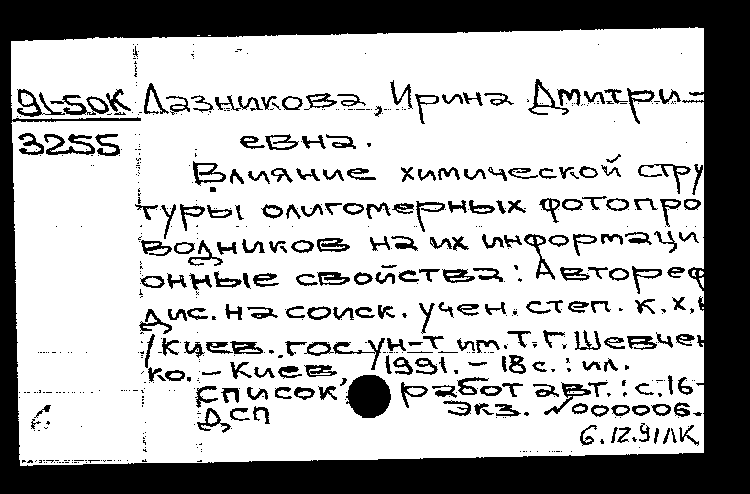 91-50К Лазникова, Ирина Дмитри-
3255 евна.
Влияние химической стру
туры олигомерных фотопро
водников на их информаци
онные свойства: Автореф
дис. на соиск. учен. степ. к.х.н
/Киев. гос. ун-т им. Т.Г. Шевчен
ко. - Киев, 1991. - 18 с.: ил.
Список работ авт.: с. 16-
ДСП Экз. №000006.
6.12.91ЛК.